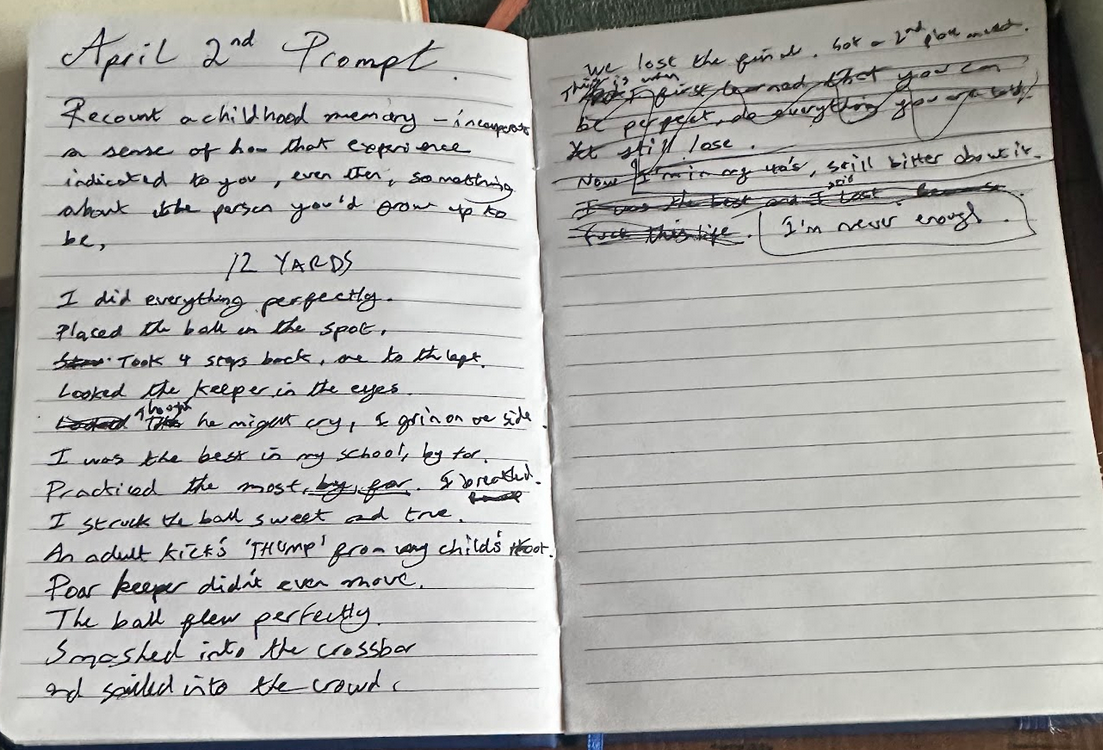 April 2nd Prompt.
Recount a childhood memory - incorporate
a sense of how that experience
indicated to you, even then, something
about the person you'd grow up to
be,
12 YARDS
I did everything perfectly.
Placed the ball on the spot.
Took 4 steps back, one to the left.
Looked the keeper in the eyes.
Thought he might cry, I grin on one side.
I was the best in my school, by far.
Practiced the most, by far. I breathed.
I struck the ball sweet and true.
An adult kick's 'THUMP' from my child's foot.
Poor keeper didn't even move.
The ball flew perfectly.
Smashed into the crossbar
and sailed into the crowd.
We lost the final. Got a 2nd place medal.
This is when I first learned that you can
be perfect, do everything you
still lose.
Now I'm in my 40's, still bitter about it.
I was the best and I still lost because
fuck this life. I'm never enough.